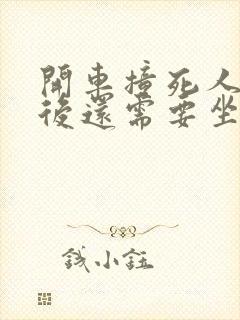 開車撞死人
後還需要坐
錢小鈺